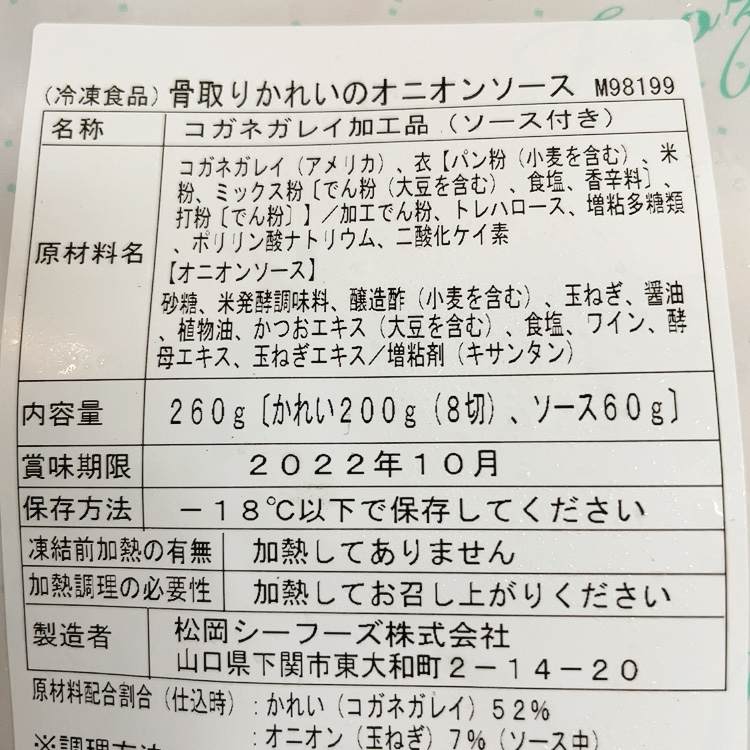 (冷凍食品) 骨取りかれいのオニオンソース M98199
名称 コガネガレイ加工品 (ソース付き)
原材料名
コガネガレイ (アメリカ) 、衣【パン粉 (小麦を含む) 、米
粉、ミックス粉〔でん粉 (大豆を含む) 、食塩、香辛料〕、
打粉〔でん粉〕】/加工でん粉、トレハロース、増粘多糖類
、ポリリン酸ナトリウム、二酸化ケイ素
【オニオンソース】
砂糖、米発酵調味料、醸造酢 (小麦を含む) 、玉ねぎ、醤油
、植物油、かつおエキス (大豆を含む) 、食塩、ワイン、酵
母エキス、玉ねぎエキス/増粘剤 (キサンタン)
内容量 260g〔かれい200g (8切) 、ソース60g〕
賞味期限 2022年10月
保存方法 -18℃以下で保存してください
凍結前加熱の有無 加熱してありません
加熱調理の必要性 加熱してお召し上がりください
製造者 松岡シーフーズ株式会社
山口県下関市東大和町2-14-20
原材料配合割合 (仕込時) : かれい (コガネガレイ) 52%
: オニオン (玉ねぎ) 7% (ソース中)
※調理方法